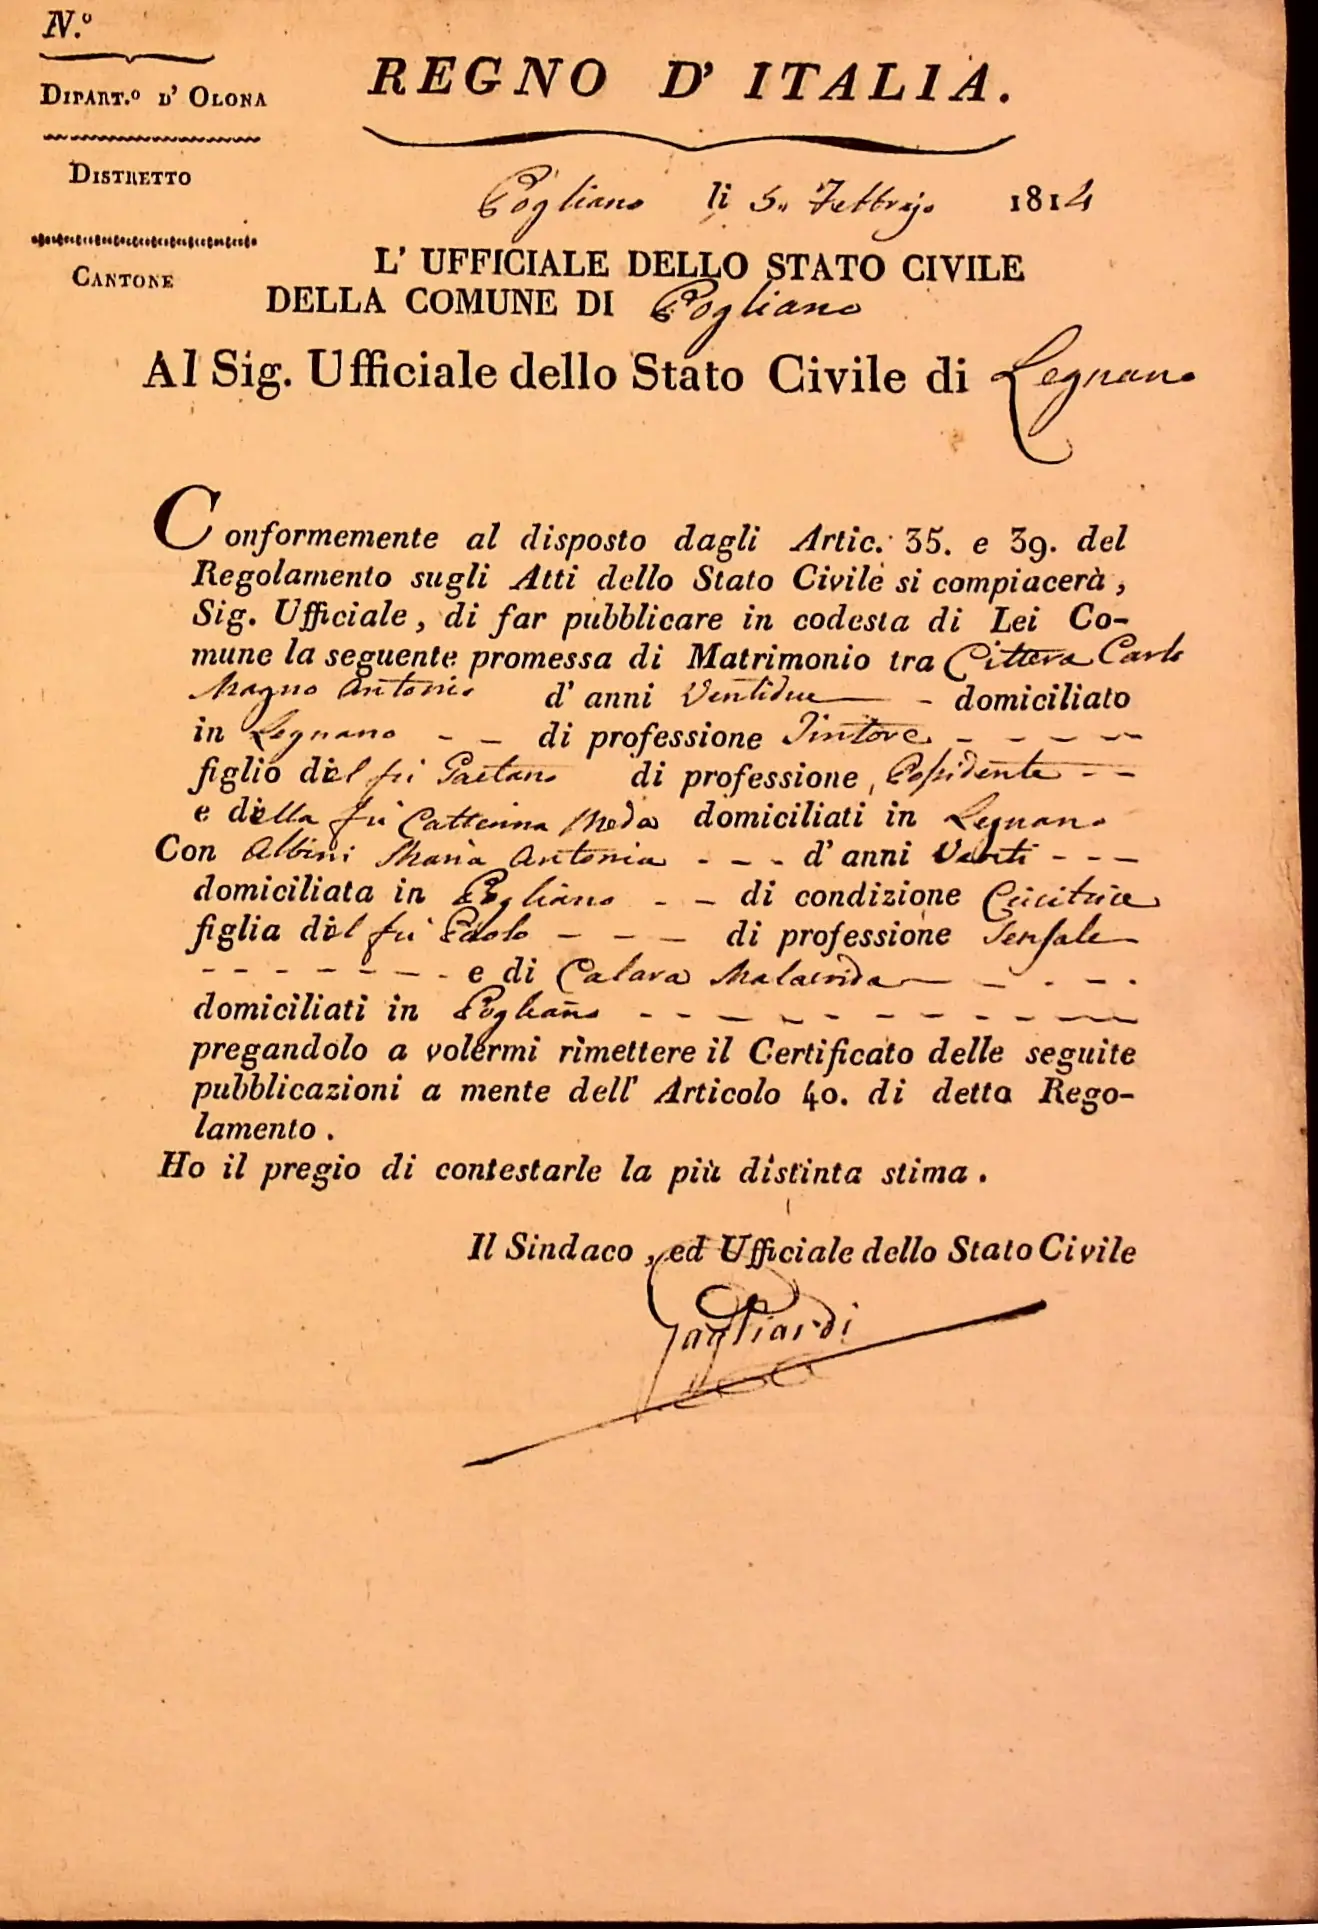 N.º
REGNO D' ITALIA.
DIPART.º D' OLONA
DISTRETTO
Pogliano li 5. Febbrajo 1814
CANTONE
L' UFFICIALE DELLO STATO CIVILE
DELLA COMUNE DI Pogliano
Al Sig. Ufficiale dello Stato Civile di Legnano
Conformemente al disposto dagli Artic. 35. e 39. del
Regolamento sugli Atti dello Stato Civile si compiacerà,
Sig. Ufficiale, di far pubblicare in codesta di Lei Co-
mune la seguente promessa di Matrimonio tra Cittera Carlo
Magno Antonio d' anni Ventidue - domiciliato
in Legnano - - di professione Tintore - - - - -
figlio del fù Gaetano di professione Possidente - -
e della fù Catterina Meda domiciliati in Legnano
Con Albini Maria Antonia - - - d' anni Venti - - -
domiciliata in Pogliano - - di condizione Cucitrice
figlia del fù Paolo - - - di professione Sensale
- - - - - - - e di Calara Malacrida - - - -
domiciliati in Pogliano - - - - - - - - - - -
pregandolo a volermi rimettere il Certificato delle seguite
pubblicazioni a mente dell' Articolo 40. di detto Rego-
lamento.
Ho il pregio di contestarle la più distinta stima.
Il Sindaco, ed Ufficiale dello Stato Civile
Gagliardi